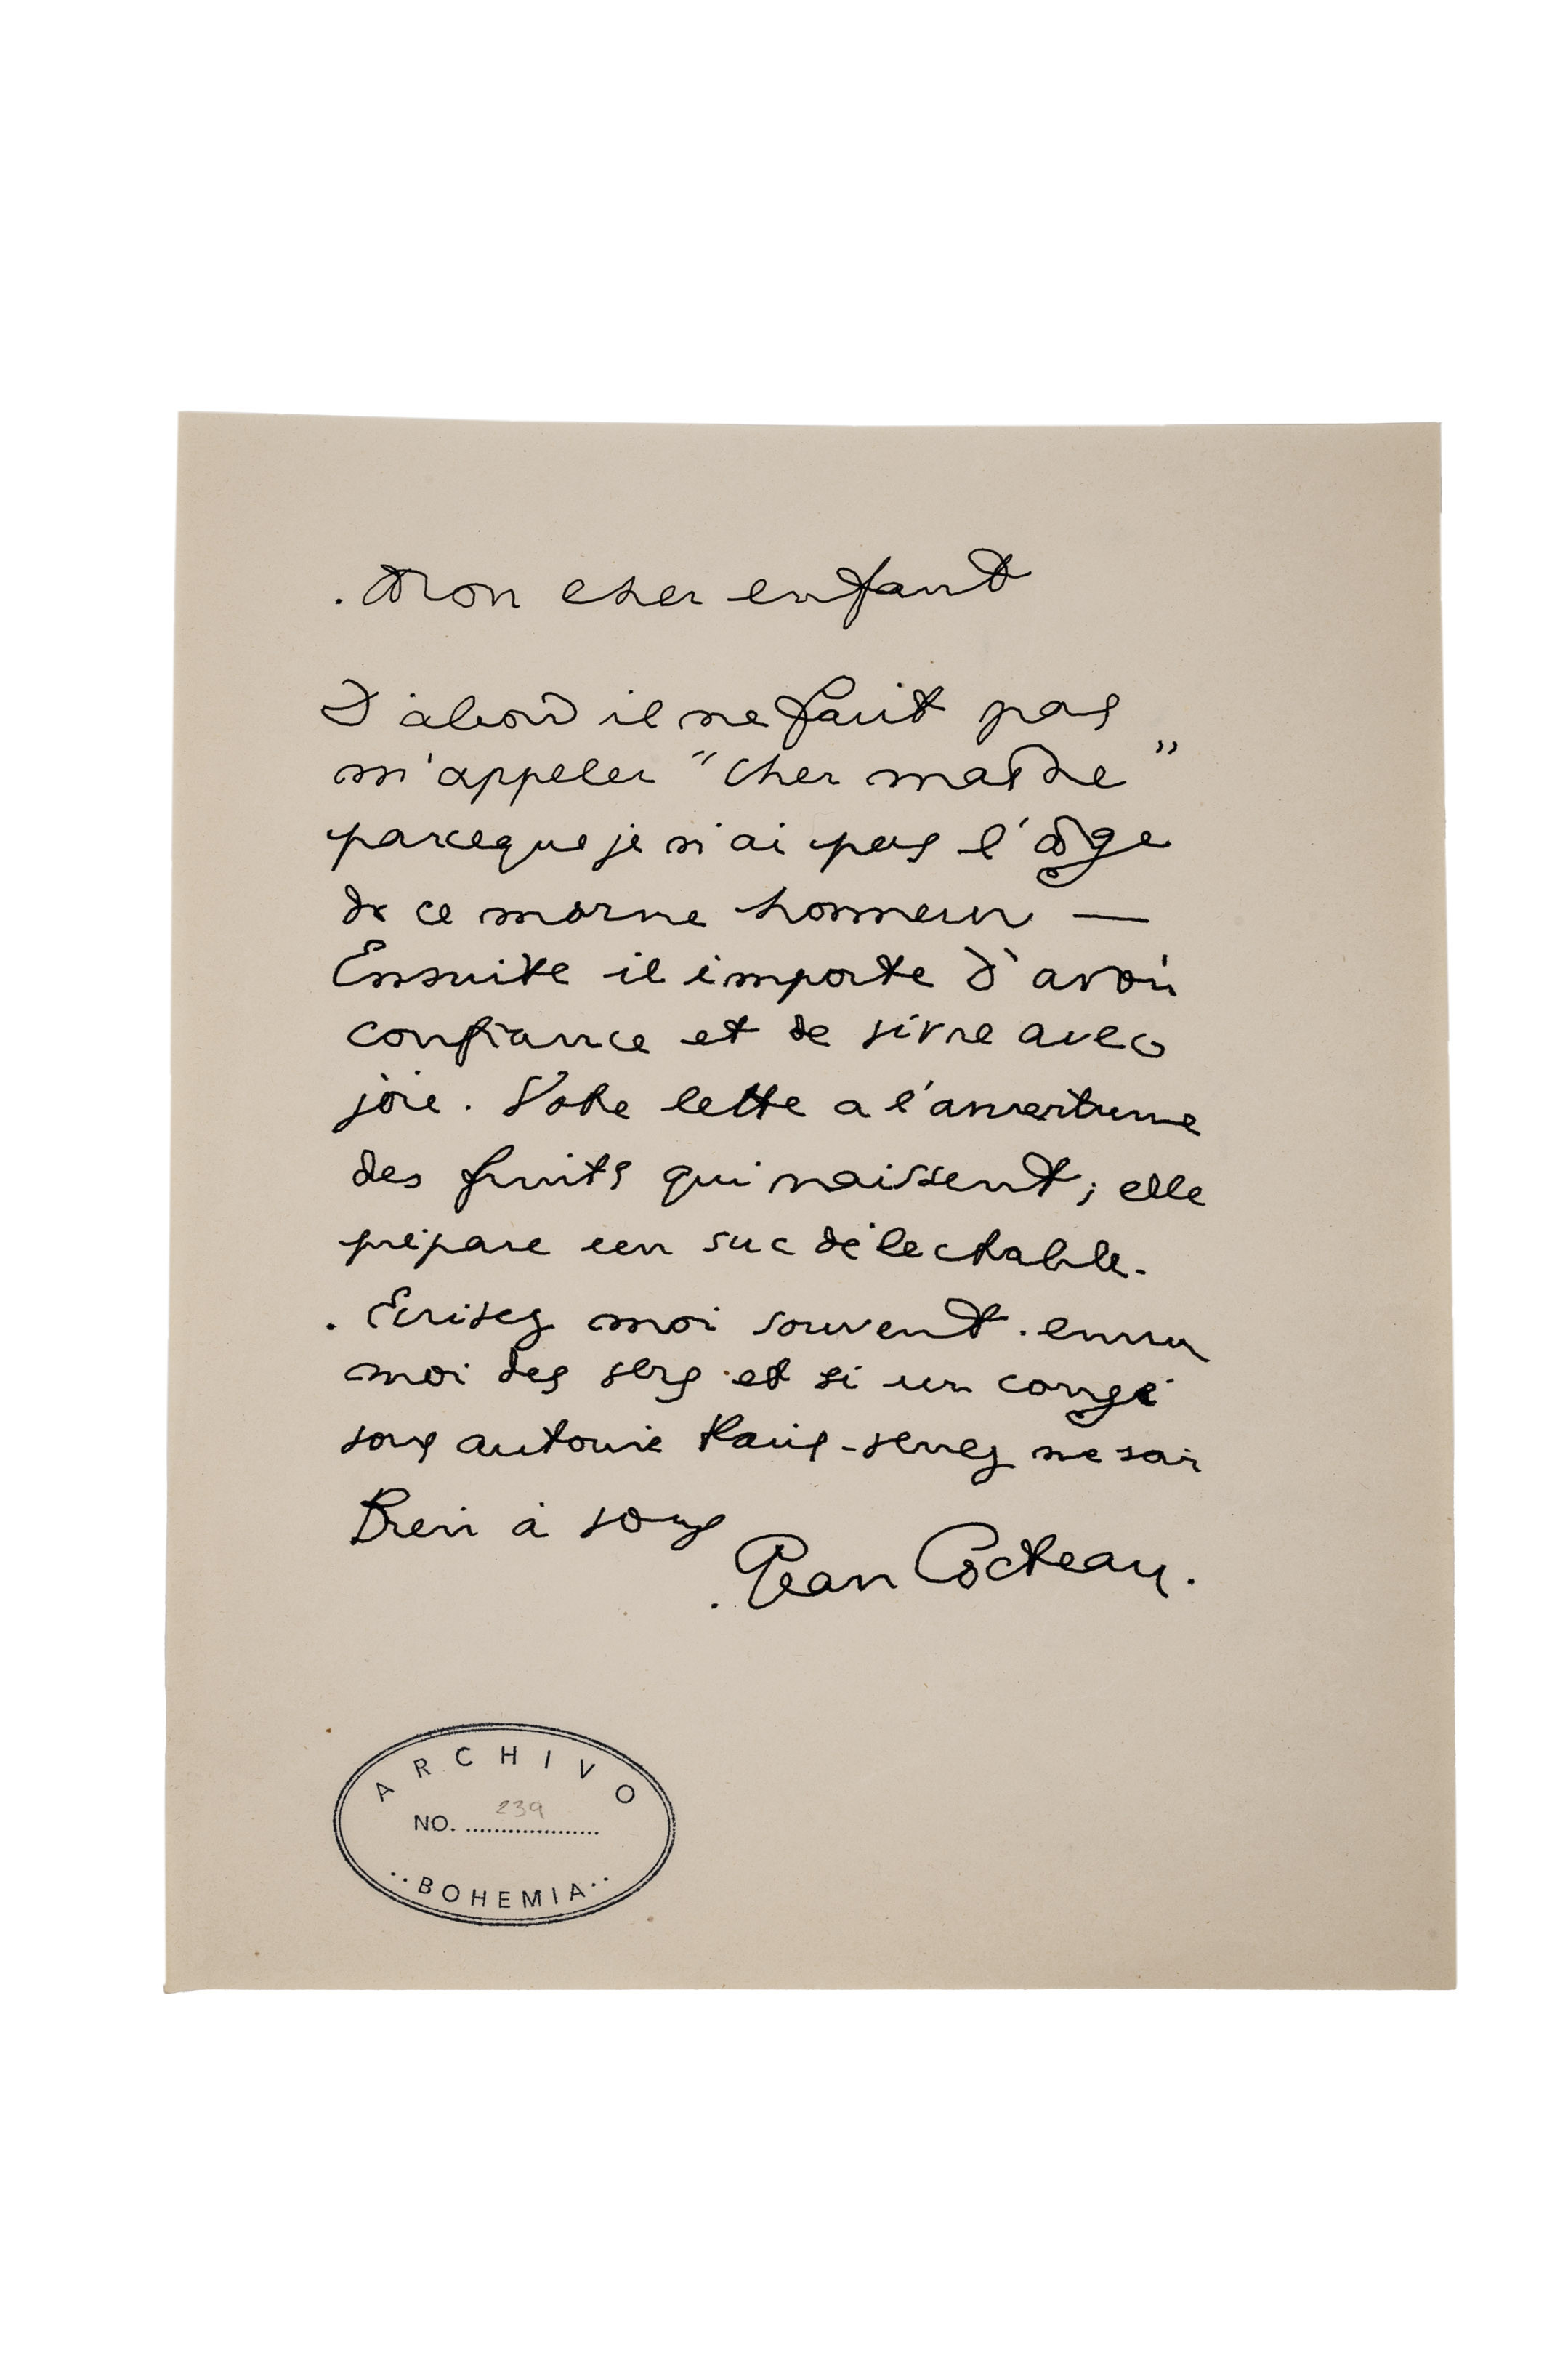 . Mon cher enfant
D'abord il ne faut pas
m'appeler "cher maître"
parceque je n'ai pas l'âge
de ce morne honneur —
Ensuite il importe d'avoir
confiance et de vivre avec
joie. Votre lettre a l'amertume
des fruits qui naissent ; elle
prépare un suc délectable.
. Ecrivez moi souvent. envoyez
moi des vers et si un congé
vous autorise Paris - venez me voir
Bien à vous
. Jean Cocteau.
ARCHIVO
NO. 239
..BOHEMIA..